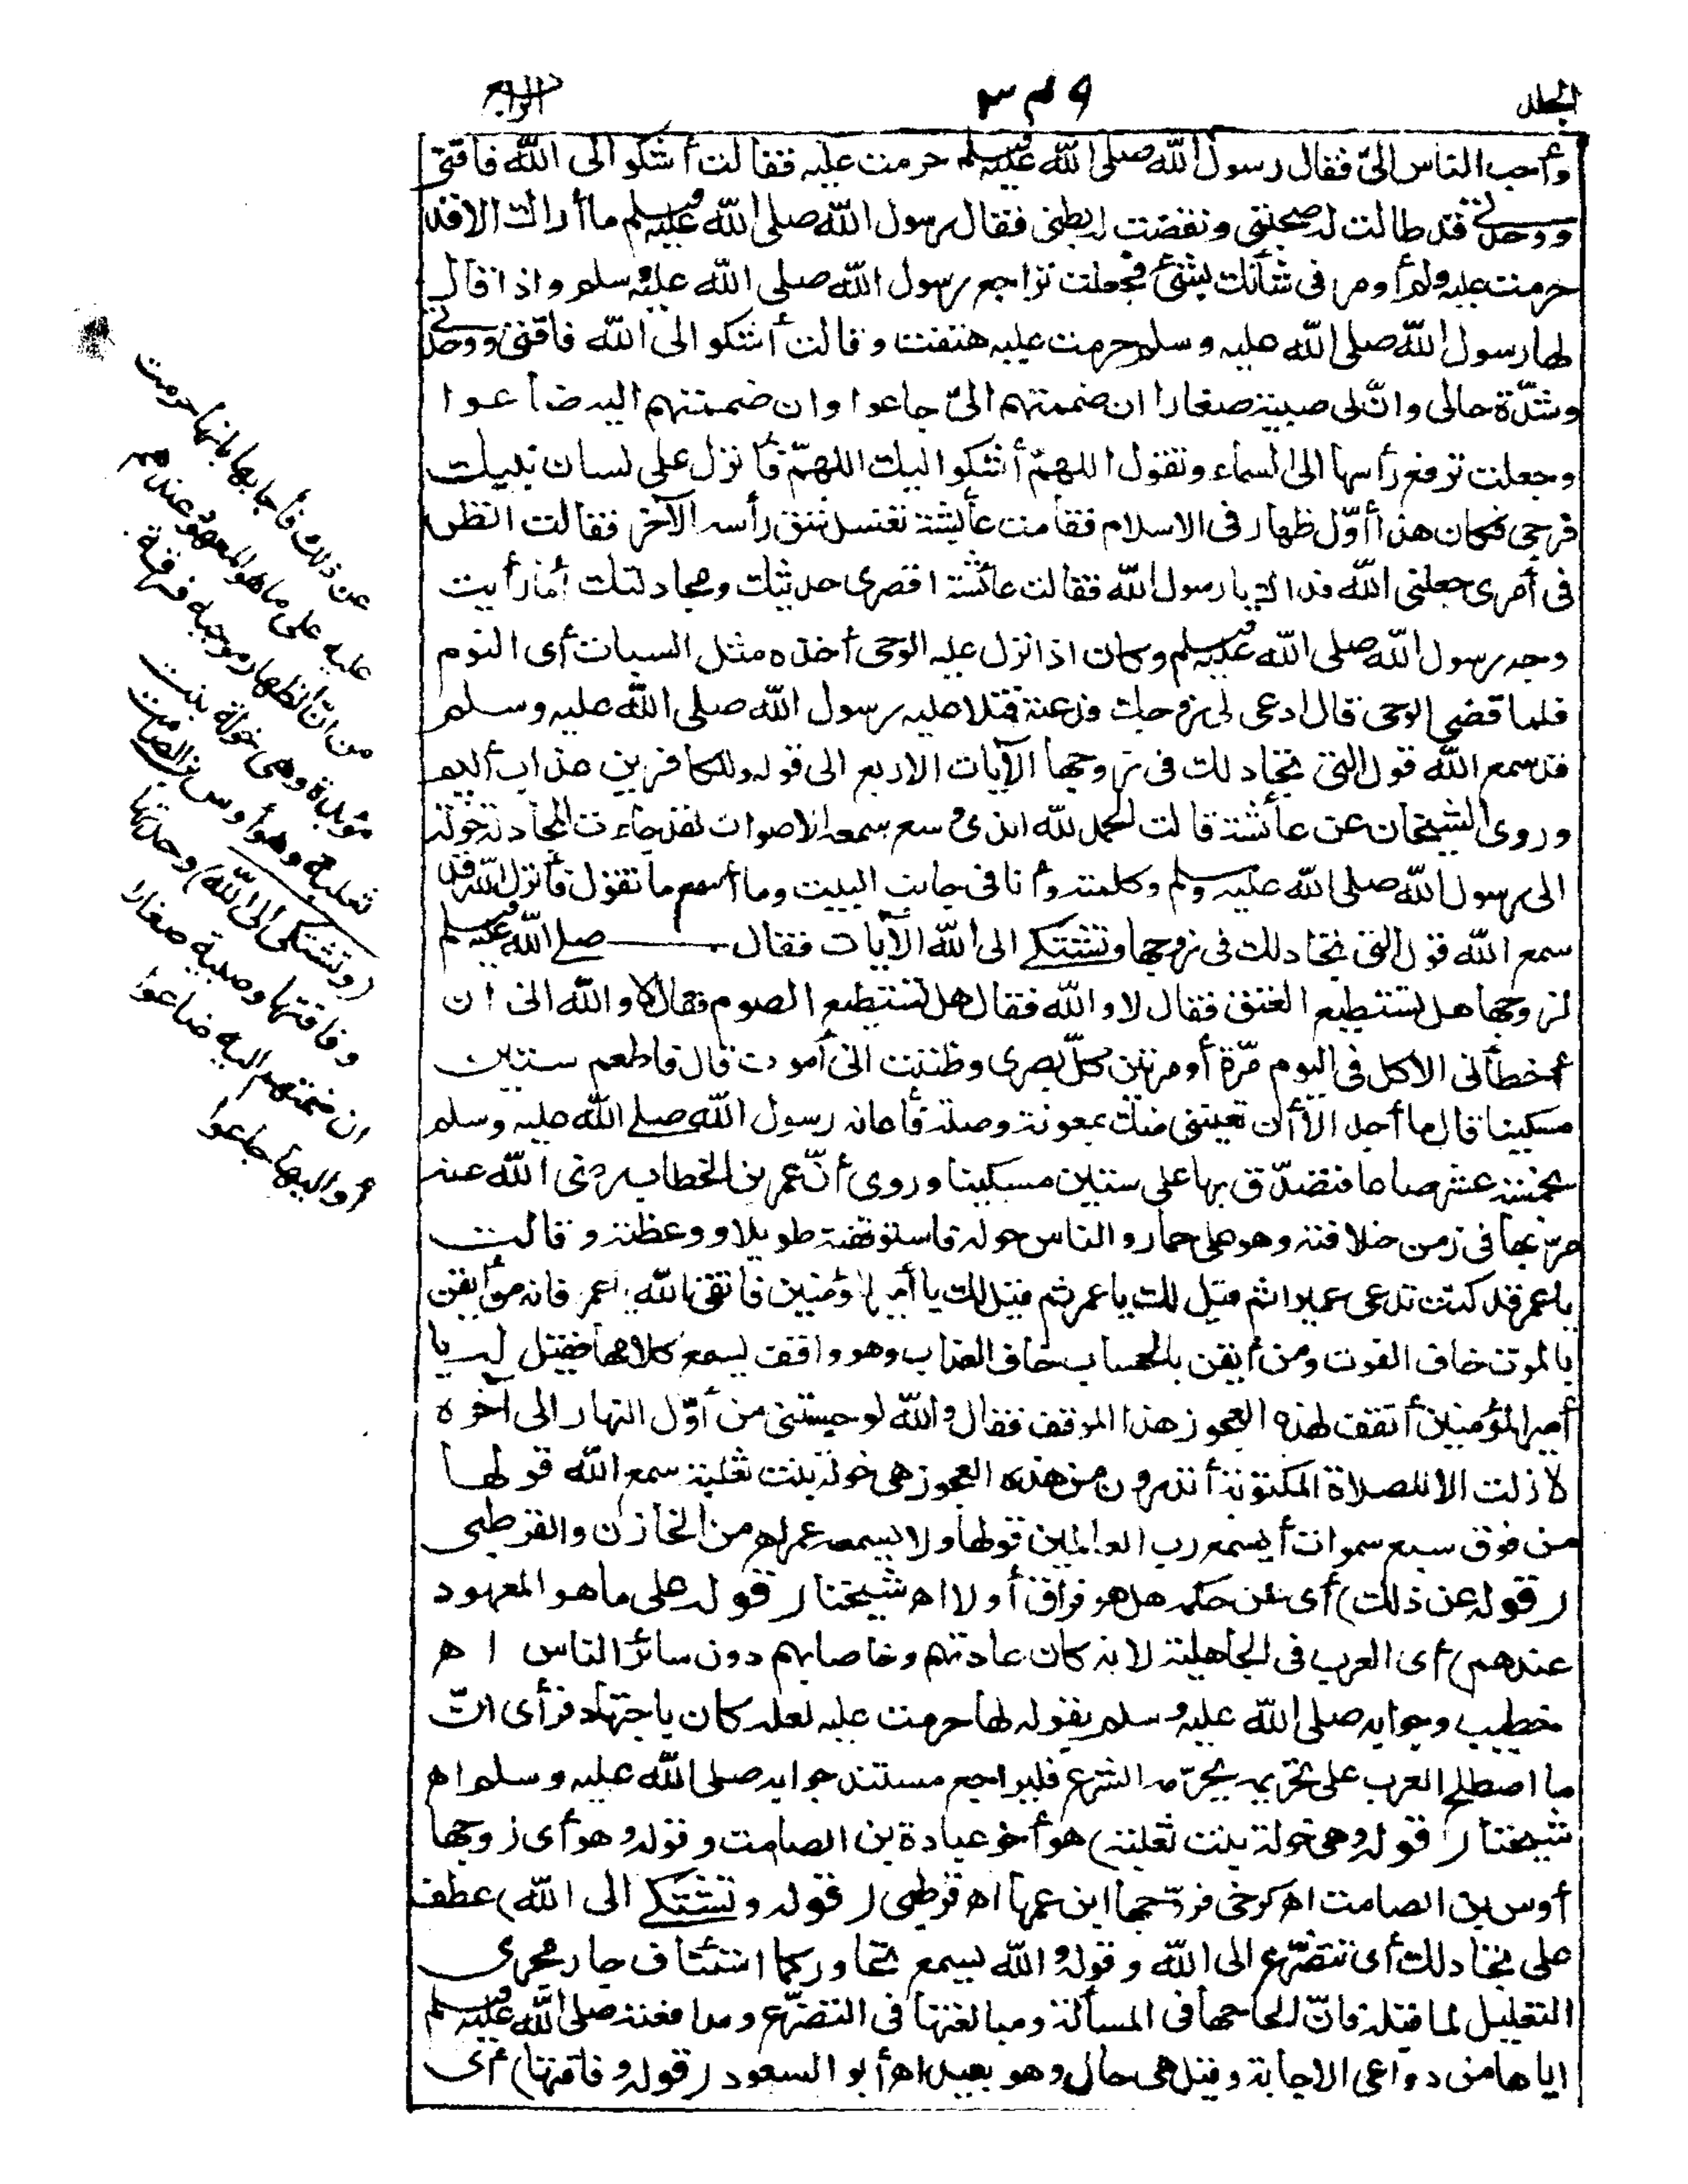 الجلد ٣٤٩ الرابع
وأحب الناس الىّ فقال رسول الله صلى الله عليه وسلم حرمت عليه فقالت أشكو الى الله فاقتى
ووحدتى قد طالت له صحبتى ونفضت له بطنى فقال رسول الله صلى الله عليه وسلم ما أراك الا قد
حرمت عليه ولم أومر فى شأنك بشئ فجعلت تراجع رسول الله صلى الله عليه وسلم واذا قال
لها رسول الله صلى الله عليه وسلم حرمت عليه هتفت وقالت أشكو الى الله فاقتى ووحدتى
وشدّة حالى وانّ لى صبية صغارا ان ضممتهم الىّ جاعوا وان ضممتهم اليه ضاعوا
وجعلت ترفع رأسها الى السماء وتقول اللهمّ أشكو اليك اللهمّ فأنزل على لسان نبيك
فرجى فكان هذا أوّل ظهار فى الاسلام فقامت عائشة تغسل شق رأسه الآخر فقالت انظر
فى أمرى جعلنى الله فداك يا رسول الله فقالت عائشة اقصرى حديثك ومجادلتك أما رأيت
وجه رسول الله صلى الله عليه وسلم وكان اذا نزل عليه الوحى أخذه مثل السبات أى النوم
فلما قضى الوحى قال ادعى لى زوجك فدعته فتلا عليه رسول الله صلى الله عليه وسلم
قد سمع الله قول التى تجادلك فى زوجها الآيات الاربع الى قوله وللكافرين عذاب أليم
وروى الشيخان عن عائشة قالت الحمد لله الذى وسع سمعه الاصوات لقد جاءت المجادلة خولة
الى رسول الله صلى الله عليه وسلم وكلمته وأنا فى جانب البيت وما أسمع ما تقول فأنزل الله قد
سمع الله قول التى تجادلك فى زوجها وتشتكى الى الله الآيات فقال صلى الله عليه وسلم
لزوجها هل تستطيع العتق فقال لا والله فقال هل تستطيع الصوم فقال لا والله انى ان
أخطأنى الاكل فى اليوم مرّة أو مرتين كلّ بصرى وظننت انى أموت قال فاطعم ستين
مسكينا قال ما أجد الا أن تعيننى منك بمعونة وصلة فأعانه رسول الله صلى الله عليه وسلم
بخمسة عشر صاعا فتصدّق بها على ستين مسكينا وروى أنّ عمر بن الخطاب رضى الله عنه
مرّ بها فى زمن خلافته وهو على حمار والناس حوله فاستوقفته طويلا ووعظته وقالت
يا عمر قد كنت تدعى عميرا ثم قيل لك يا عمر ثم قيل لك يا أمير المؤمنين فاتقى الله يا عمر فانه من أيقن
بالموت خاف الفوت ومن أيقن بالحساب خاف العذاب وهو واقف يسمع كلامها فقيل له يا
أمير المؤمنين أتقف لهذه العجوز هذا الموقف فقال والله لو حبستنى من أوّل النهار الى آخره
لا زلت الا للصلاة المكتوبة أتدرون من هذه العجوز هى خولة بنت ثعلبة سمع الله قولها
من فوق سبع سموات أيسمع رب العالمين قولها ولا يسمعه عمر اه من الخازن والقرطبى
(قوله عن ذلك) أى عن حكمه هل هو فراق أولا اه شيخنا (قوله على ما هو المعهود
عندهم) أى العرب فى الجاهلية لانه كان عادتهم وخاصا بهم دون سائر الناس اه
خطيب وجوابه صلى الله عليه وسلم بقوله لها حرمت عليه لعله كان باجتهاد فرأى انّ
ما اصطلح العرب على تحريمه يحرّمه الشرع فليراجع مستند جوابه صلى الله عليه وسلم اه
شيخنا (قوله وهى خولة بنت ثعلبة) هو أخو عبادة بن الصامت وقوله وهو أى زوجها
أوس بن الصامت اه كرخى فزوجها ابن عمها اه قرطبى (قوله وتشتكى الى الله) عطف
على تجادلك أى تتضرّع الى الله وقوله والله يسمع تحاوركما استئناف جار مجرى
التعليل لما قبله فانّ الحاحها فى المسألة ومبالغتها فى التضرّع ومدافعته صلى الله عليه وسلم
اياها من دواعى الاجابة وقيل هى حال وهو بعيد اه أبو السعود (قوله وفاقتها) أى
عن ذلك فأجابها بأنها حرمت
عليه على ما هو المعهود عندهم
من انّ الظهار موجبه فرقة
مؤبدة وهى خولة بنت
ثعلبة وهو أوس بن الصامت
(وتشتكى الى الله) وحدتها
وفاقتها وصبية صغارا
ان ضمتهم اليه ضاعوا
أو اليها جاعوا